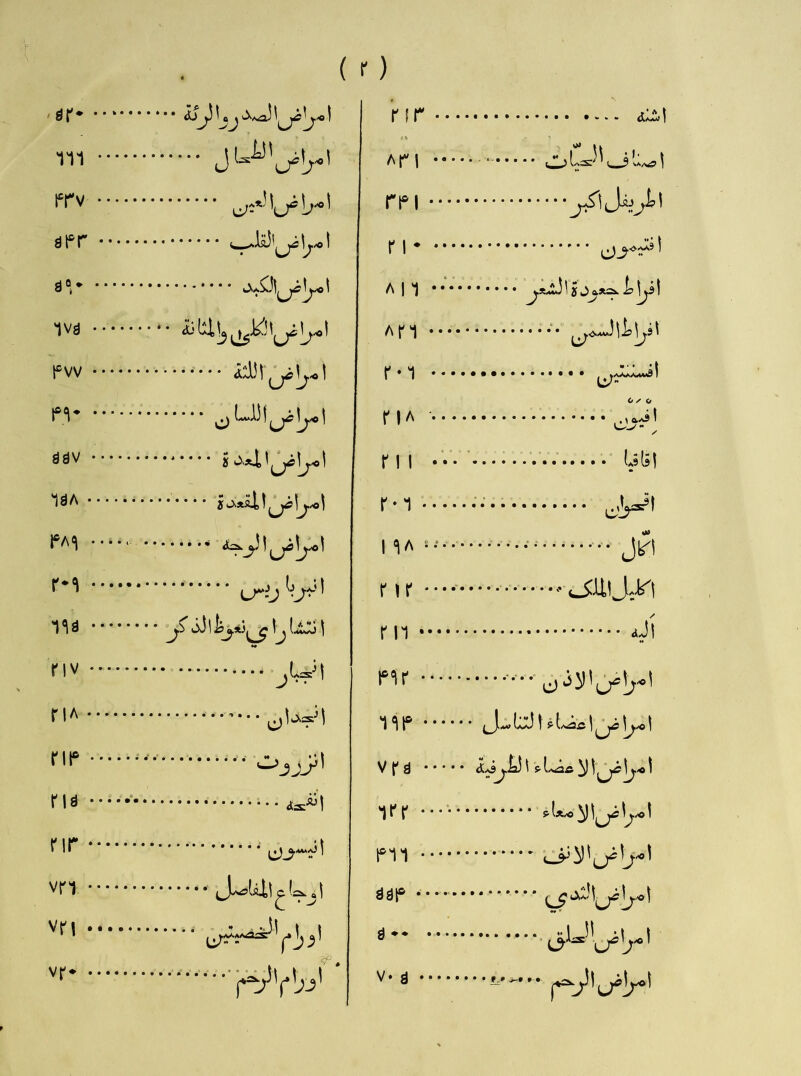 ( ٢ )
اشنه ٢١٣
اصناف الحيات ٨٢١
اطريفل اكبر ٢۴١
افتيمون ٢١٠
افراط جعودة الشعر ٨١٦
افراط السمن ٨٢٦
افسنتين ٢٠٦
افيون ٢١٨
اقاقيا ٢١١
اقحوان ٢٠٦
اكحل ١٩٨
اكليل الملك ٢١٢
الية ٢١٦
امراض الاذن ۴٦٢
امراض اعضاء التناسل ٦٩۴
امراض الاعضاء الطرفية ٧٢٥
امراض الامعاء ٦٢٢
امراض الانف ۴٦٦
امراض الثدي ٥٥۴
امراض الحلق ٥٠٠
امراض الرحم ٧٠٥
امراض الصدر والرية ٥٢٠
امراض الطحال ٦٦٦
امراض العين ۴٢٧
امراض القلب ٥۴٢
امراض الكبد ٥٩٠
امراض الكلى والمثانة ٦٧٥
امراض اللثة ۴٧٧
امراض اللسان ۴٩٠
امراض المعدة ٥٥٧
امراض المقعدة ٦٥٨
امراض الوجه ۴٨٩
انبرباريس ٢٠٩
انتشار يعني نعوظ الذكر ٦٩٥
انجبار ٢١٧
انجدان ٢١٨
انزروت ٢١۴
انفحة ٢١٥
انيسون ٢١٣
اوجاع المفاصل ٧٢٦
اورام الخصيتين ٧٢١
اورام الرحم ٧٢٠